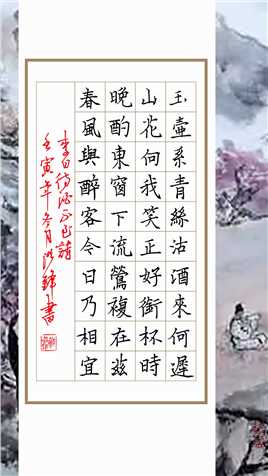 玉壺系青絲沽酒來何遲
山花向我笑正好銜杯時
晚酌東窗下流鶯複在茲
春風與醉客今日乃相宜
李白待酒不至詩
壬寅年冬月書